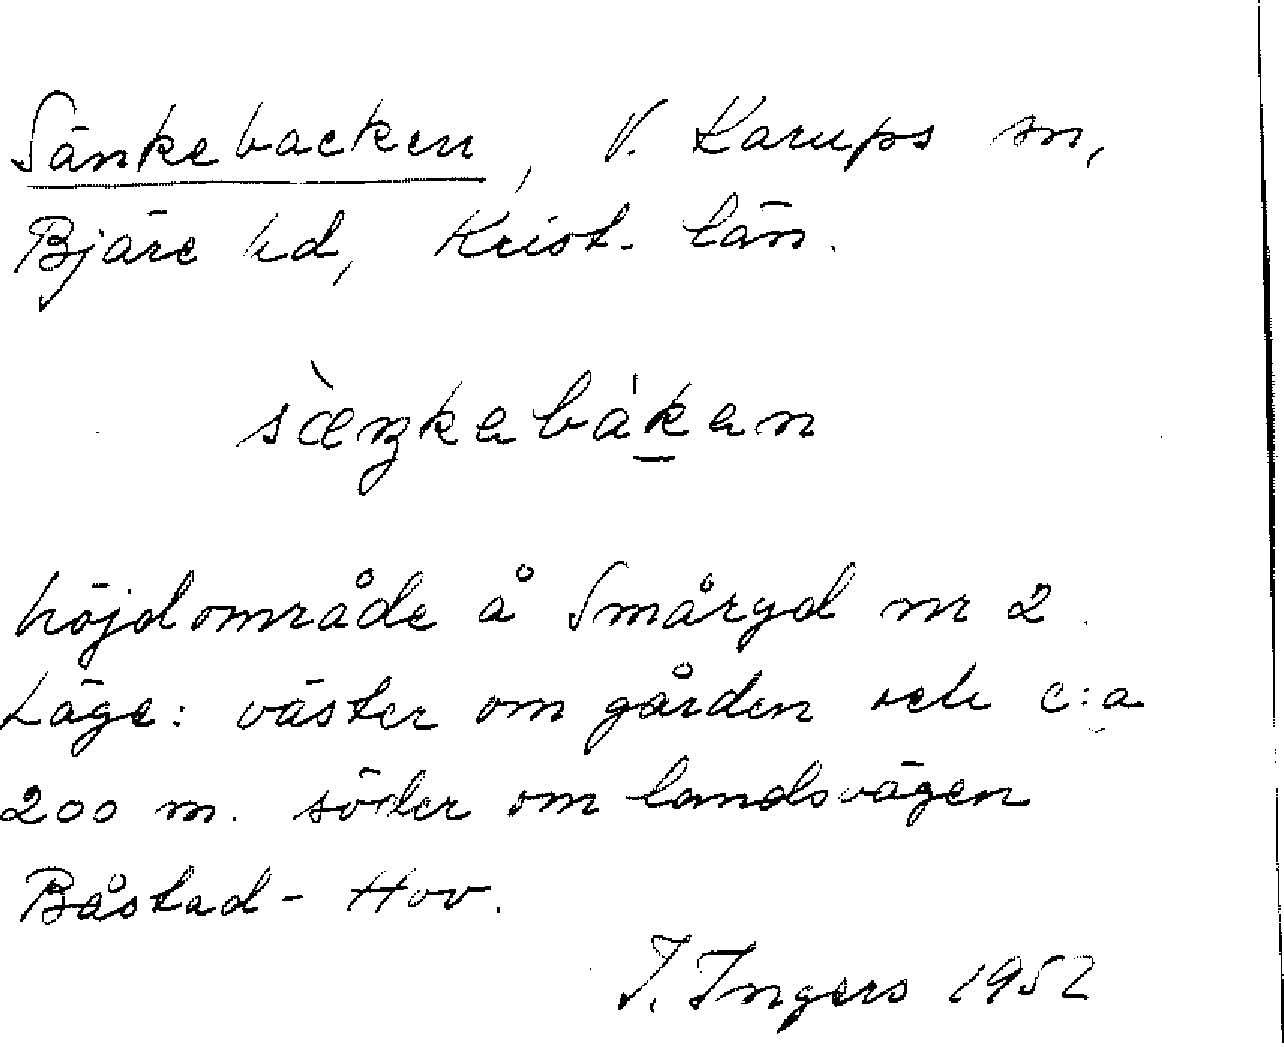 Sänkebacken, V. Karups sn,
Bjäre hd, Krist. län.
sæ̀ŋkabák̲an
höjdområde å Smäryd nr 2.
Läge: väster om gården och c:a
200 m. söder om landsvägen
Båstad - Hov.
I. Ingers 1952